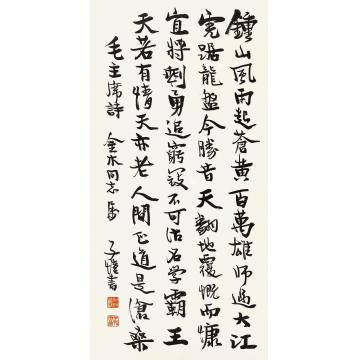 鍾山風雨起蒼黄百萬雄師過大江
虎踞龍盤今勝昔天翻地覆慨而慷
宜將剩勇追窮寇不可沽名学霸王
天若有情天亦老人間正道是滄桑
毛主席詩 金水同志属 子愷書